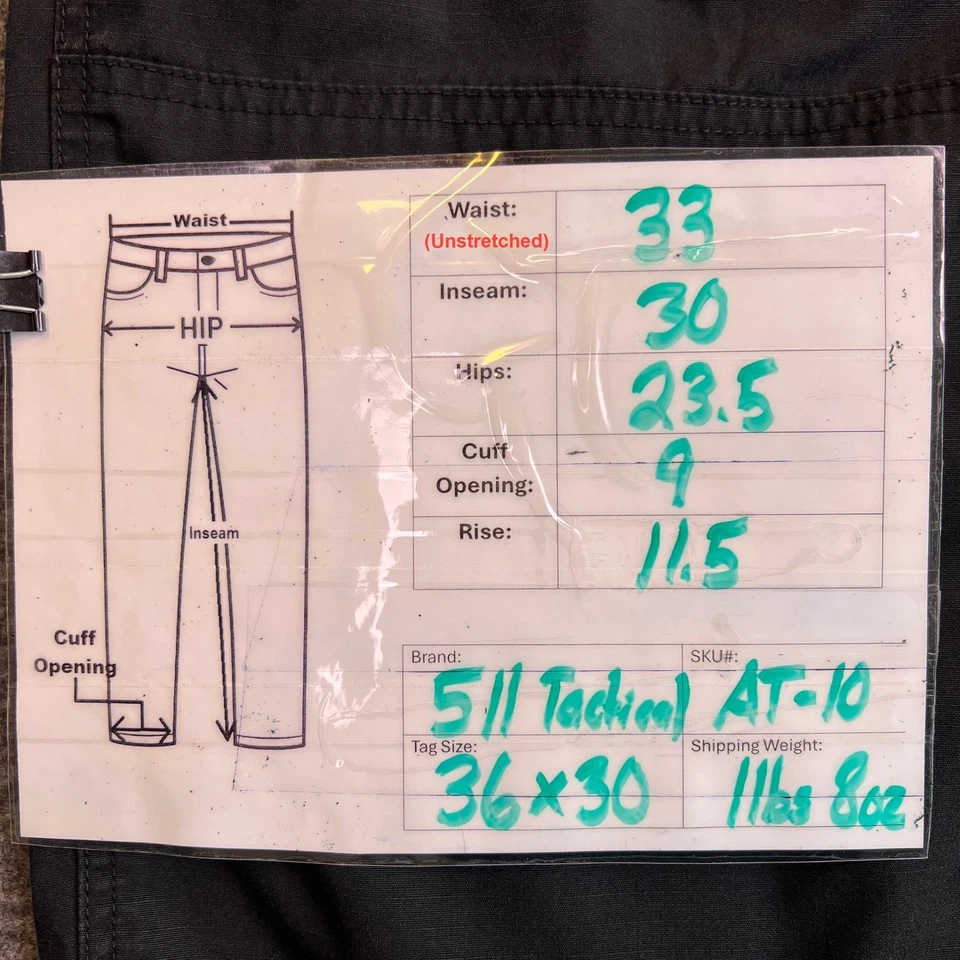 Waist
HIP
Inseam
Cuff
Opening
Waist: 33
(Unstretched)
Inseam: 30
Hips: 23.5
Cuff
Opening: 9
Rise: 11.5
Brand: 511 Tactical
SKU#: AT-10
Tag Size: 36x30
Shipping Weight: 1lbs 8oz